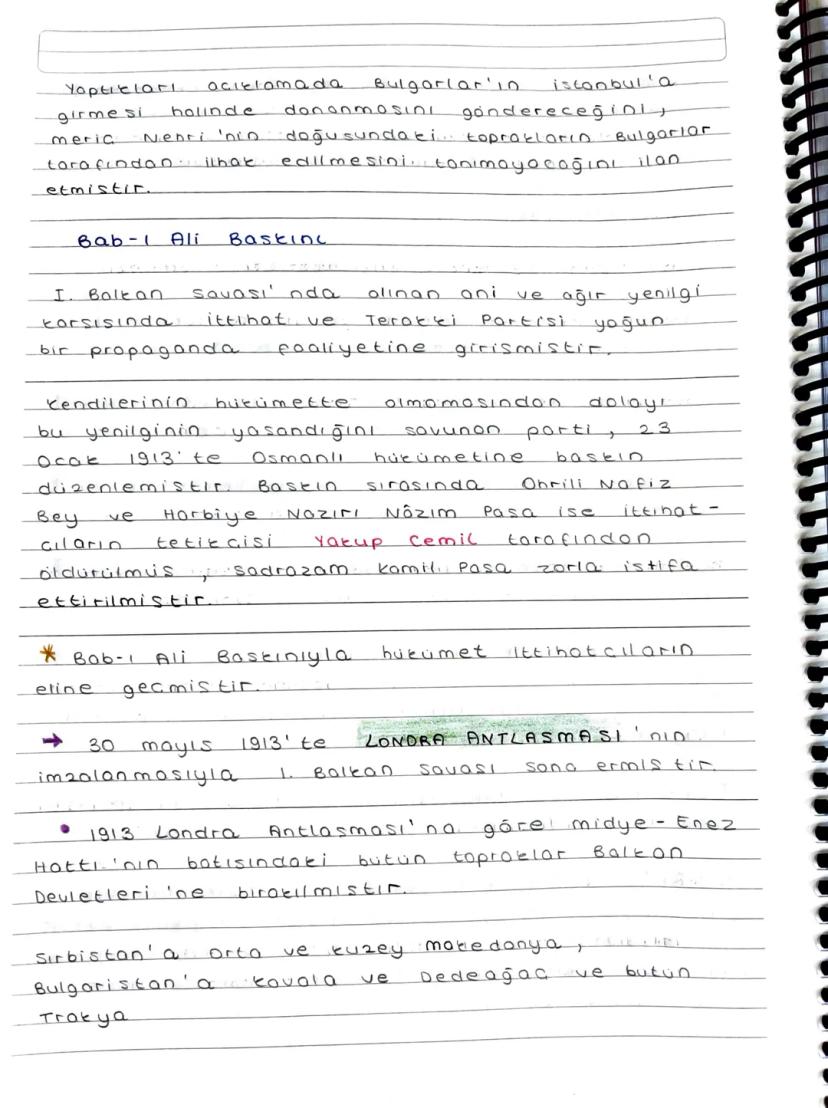 Yaptıkları acıklamada Bulgarlar'ın istanbul'a
girmesi halinde donanmasını göndereceğini,
meric Nehri'nin doğusundaki toprakların Bulgarlar
tarafından ilhak edilmesini tanımayacağını ilan
etmistir.
Bab-ı Ali Baskını
I. Balkan savası'nda alınan ani ve ağır yenilgi
karsısında ittihat ve Terakki Partisi yoğun
bir propaganda faaliyetine girismistir.
Kendilerinin hükümette olmamasından dolayı
bu yenilginin yasandığını savunan parti, 23
Ocak 1913'te Osmanlı hükümetine baskın
düzenlemistir. Baskın sırasında Ohrili Nafiz
Bey ve Harbiye Nazırı Nâzım Pasa ise ittihat-
cıların tetikcisi Yakup Cemil tarafından
öldürülmüs, sadrazam Kamil Pasa zorla istifa
ettirilmistir.
* Bab-ı Ali Baskınıyla hükümet ittihatcıların
eline gecmistir.
→ 30 mayıs 1913'te LONDRA ANTLASMASI'nın
imzalanmasıyla 1. Balkan Savası sona ermistir.
• 1913 Londra Antlasması'na göre midye - Enez
Hattı'nın batısındaki bütün topraklar Balkan
Devletleri'ne bırakılmıstır.
Sırbistan'a orta ve kuzey makedonya,
Bulgaristan'a kavala ve Dedeağac ve bütün
Trakya